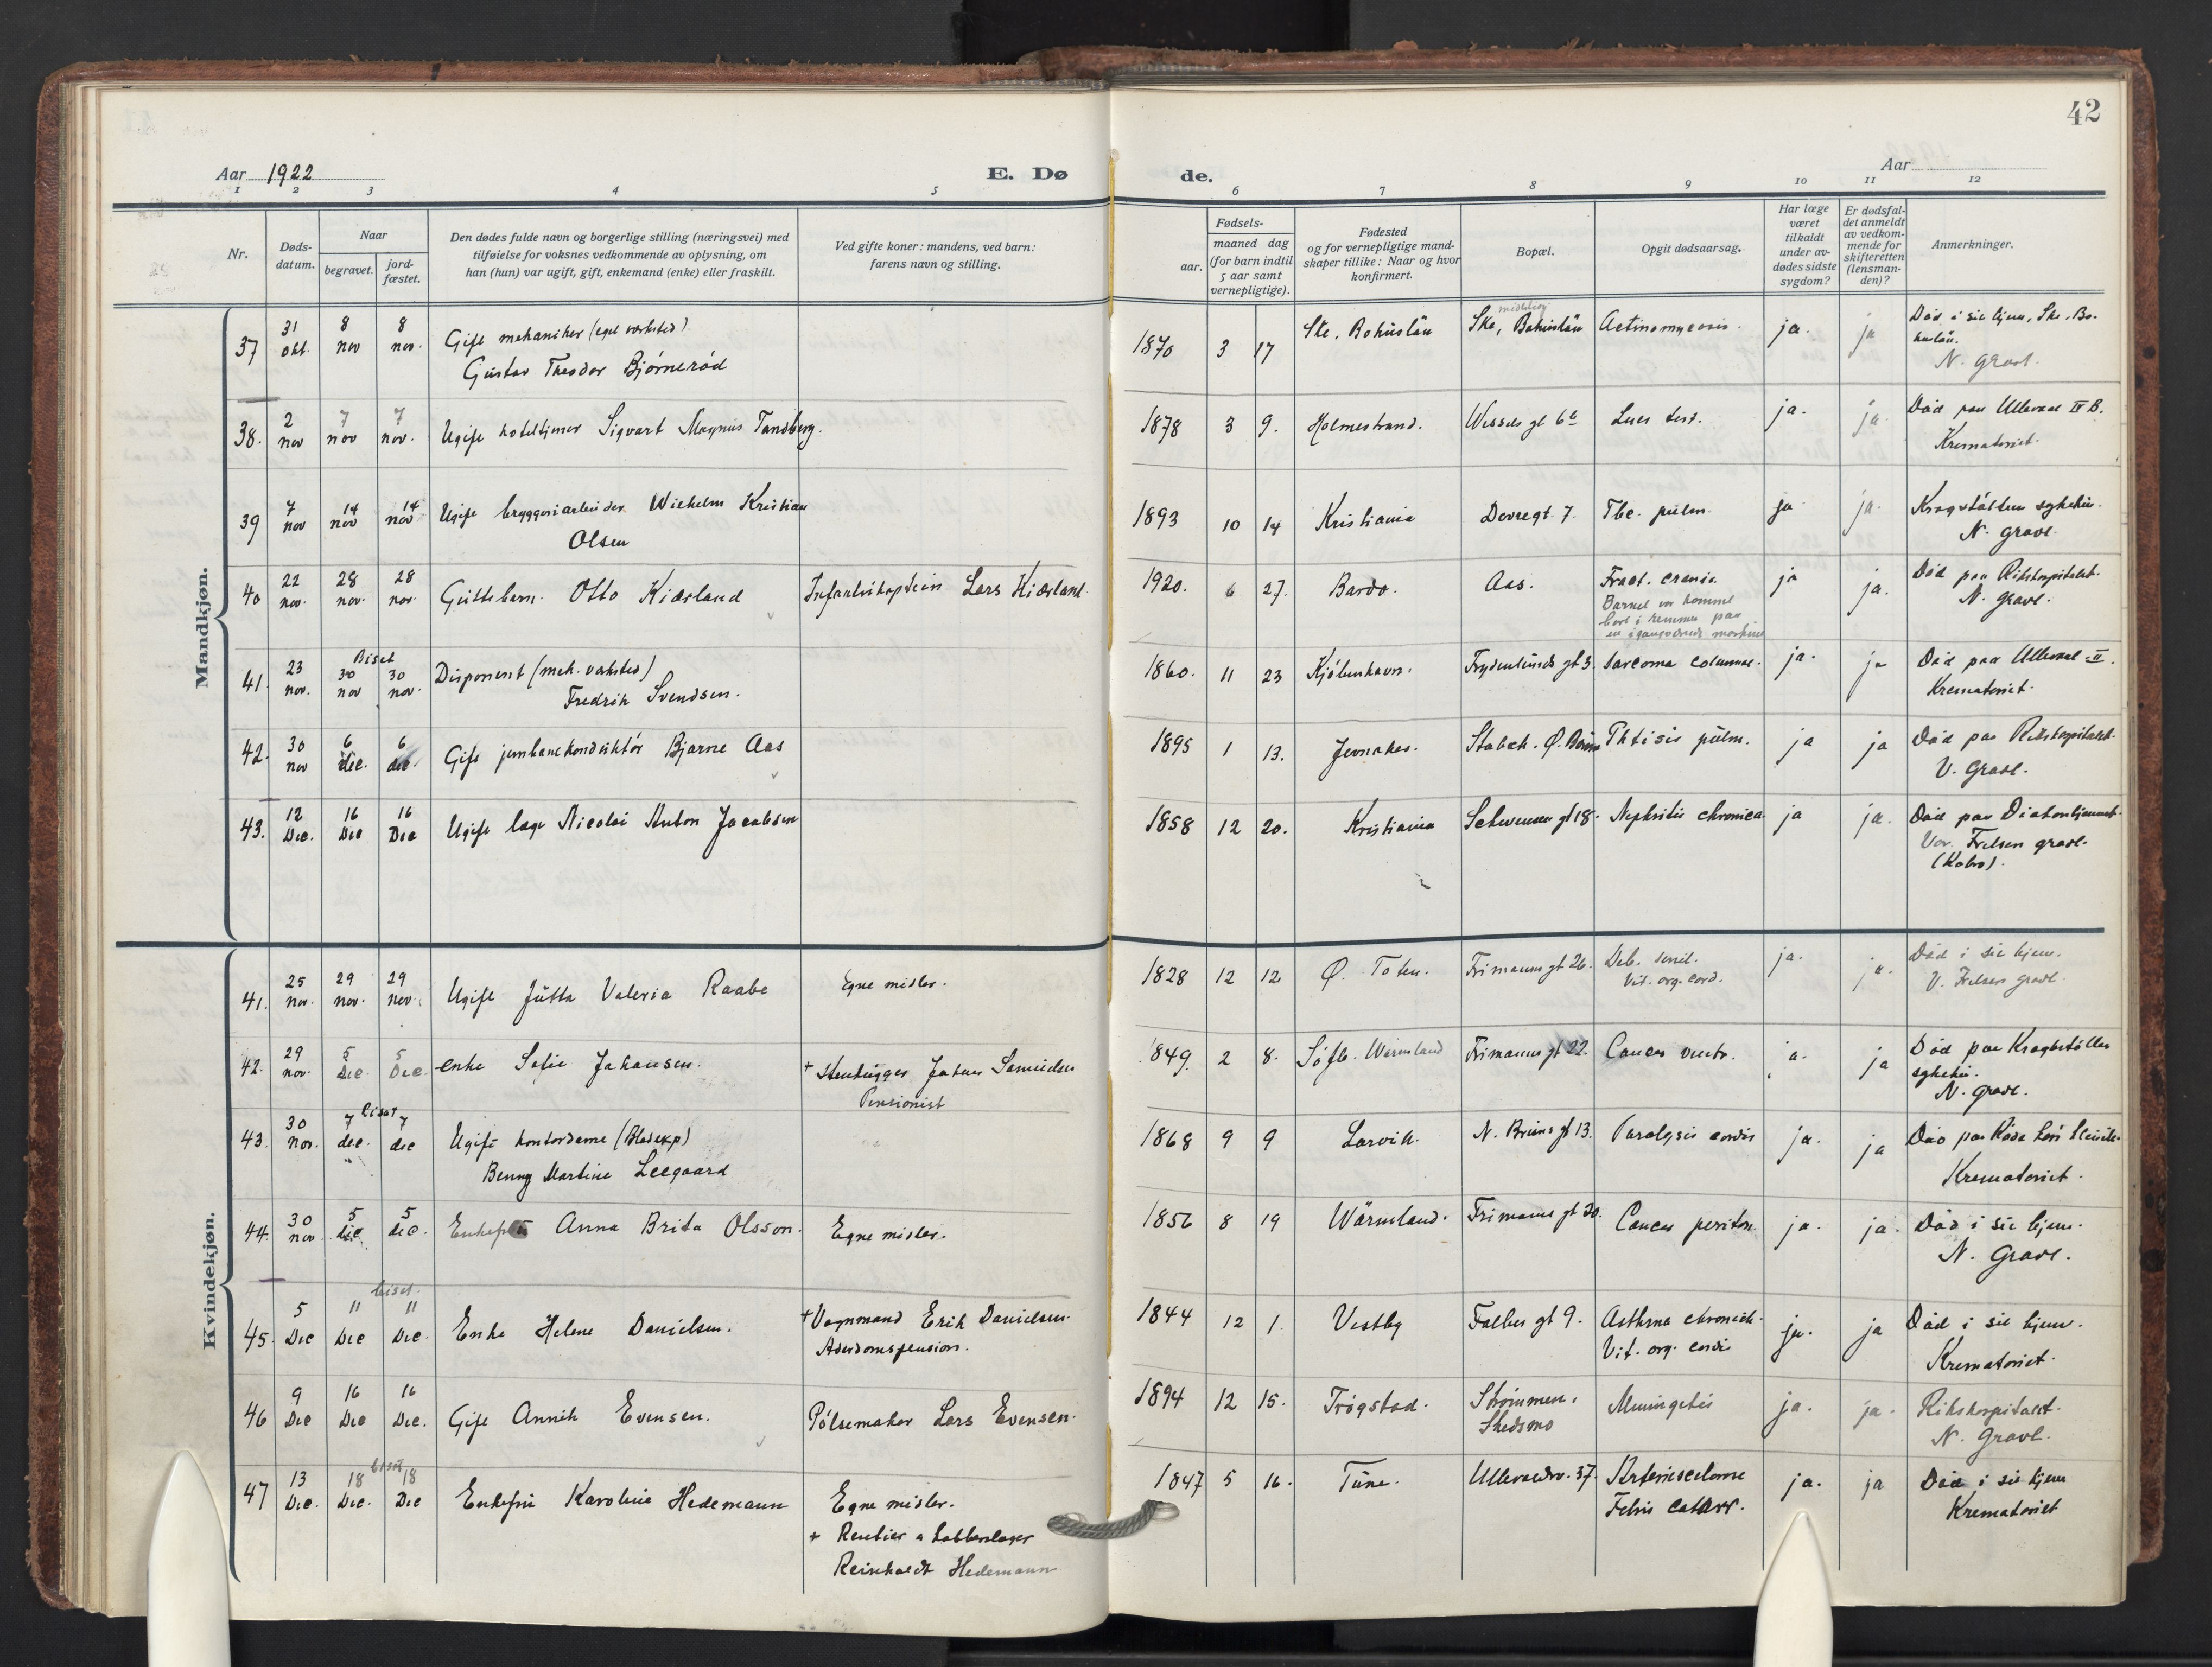 42
Aar 1922
E. Dø
de.
Aar
1 2 3 4 5 6 7 8 9 10 11 12
Nr.
Døds-
datum.
Naar
begravet.
jord-
fæstet.
Den dødes fulde navn og borgerlige stilling (næringsvei) med
tilføielse for voksnes vedkommende av oplysning, om
han (hun) var ugift, gift, enkemand (enke) eller fraskilt.
Ved gifte koner: mandens, ved barn:
farens navn og stilling.
Fødsels-
aar.
maaned dag
(for barn indtil
5 aar samt
vernepligtige).
Fødested
og for vernepligtige mand-
skaper tillike: Naar og hvor
konfirmert.
Bopæl.
Opgit dødsaarsag.
Har læge
været
tilkaldt
under av-
dødes sidste
sygdom?
Er dødsfal-
det anmeldt
av vedkom-
mende for
skifteretten
(lensman-
den)?
Anmerkninger.
Mandkjøn.
37 31 okt. 8 nov 8 nov. Gift mekaniker (eget verksted)
Gustav Theodor Bjørnerød
1870 3 17 Ske, Bohuslän Ske, Bohuslän Actinomycosis. ja. ja Død i sit hjem, Ske, Bo-
huslän.
N. Gravl.
38. 2 nov 7 nov 7 nov. Ugift hoteltjener Sigvart Magnus Tandberg.
1878 3 9. Holmestrand. Wessels gt 6 Lues tert. ja. ja. Død paa Ullevaal IV B.
Krematoriet.
39 7 nov 14 nov 14 nov Ugift bryggeriarbeider Wilhelm Kristian
Olsen
1893 10 14 Kristiania Dovregt. 7. Tbc. pulm. ja ja. Krogstøtten sykehus.
N. gravl.
40 22 nov. 28 nov. 28 nov. Guttebarn. Otto Kiærland Infanterikaptein Lars Kiærland
1920. 6 27. Bardo. Aas. Fract. cranii.
Barnet var kommet
bort i remmen paa
en igangværende maskine
ja ja. Død paa Rikshospitalet.
N. gravl.
41. 23 nov. Biset 30 nov 30 nov. Disponent (mek. verksted)
Fredrik Svendsen.
1860. 11 23 Kjøbenhavn. Frydenlunds gt 3 Sarcoma columnae. ja. ja Død paa Ullevaal II.
Krematoriet.
42. 30 nov 6 dec. 6 dec. Gift jernbanekonduktør Bjarne Aas
1895 1 13. Jevnaker. Stabek. Ø. Bærum Phtisis pulm. ja ja Død paa Rikshospitalet.
V. Gravl.
43. 12 Dec. 16 Dec 16 Dec Ugift læge Nicolai Anton Jacobsen
1858 12 20. Kristiania Schwensens gt 18. Nephritis chronica ja ja. Død paa Diakonhjemmet.
Vor Frelsers gravl.
Kvindekjøn.
41. 25 nov. 29 nov. 29 nov. Ugift Jutta Valeria Raabe Egne midler.
1828 12 12 Ø. Toten. Frimanns gt 26. Deb. senil.
Vit. org. cord.
ja. ja. Død i sit hjem.
V. Frelsers gravl.
42. 29 nov. 5 Dec. 5 Dec. enke Sofie Johansen. + Stenhugger Johan Samuelsen
Pensionist
1849. 2 8. Søfle. Wärmland Frimanns gt 22. Cancer ventr. ja. ja Død paa Krogstøtten
sykehus.
N. gravl.
43. 30 nov. biset 7 dec. 7 dec Ugift kontordame (Bladexp)
Benny Martine Leegaard
1868 9 9 Larvik. N. Bruns gt 13. Paralysis cordis ja. ja Død paa Røde Kors Klinik.
Krematoriet.
44. 30 nov. 5 dec 5 dec. Enkefru Anna Brita Olsson. Egne midler.
1856 8 19 Wärmland. Frimanns gt 20. Cancer periton. ja. ja. Død i sit hjem.
N. Gravl.
45. 5 Dec biset. 11 Dec 11 Dec. Enke Helene Danielsen. + Vognmand Erik Danielsen.
Alderdomspension.
1844 12 1. Vestby Falbes gt 9. Asthma chronich.
Vit. org. cordis
ja. ja Død i sit hjem.
Krematoriet.
46 9 Dec 16 Dec 16 Dec. Gift Annik Evensen. Pølsemaker Lars Evensen.
1894 12 15. Trøgstad. Strømmen,
Skedsmo
Meningitis ja. ja. Rikshospitalet.
N. Gravl.
47 13 Dec. biset 18 Dec. 18 Dec Enkefru Karoline Hedemann Egne midler.
+ Rentier
Reinholdt Hedemann
1847 5 16. Tune. Ullevaalsv. 37. Arteriesclerose
Febris catarr.
ja. ja Død i sit hjem
Krematoriet